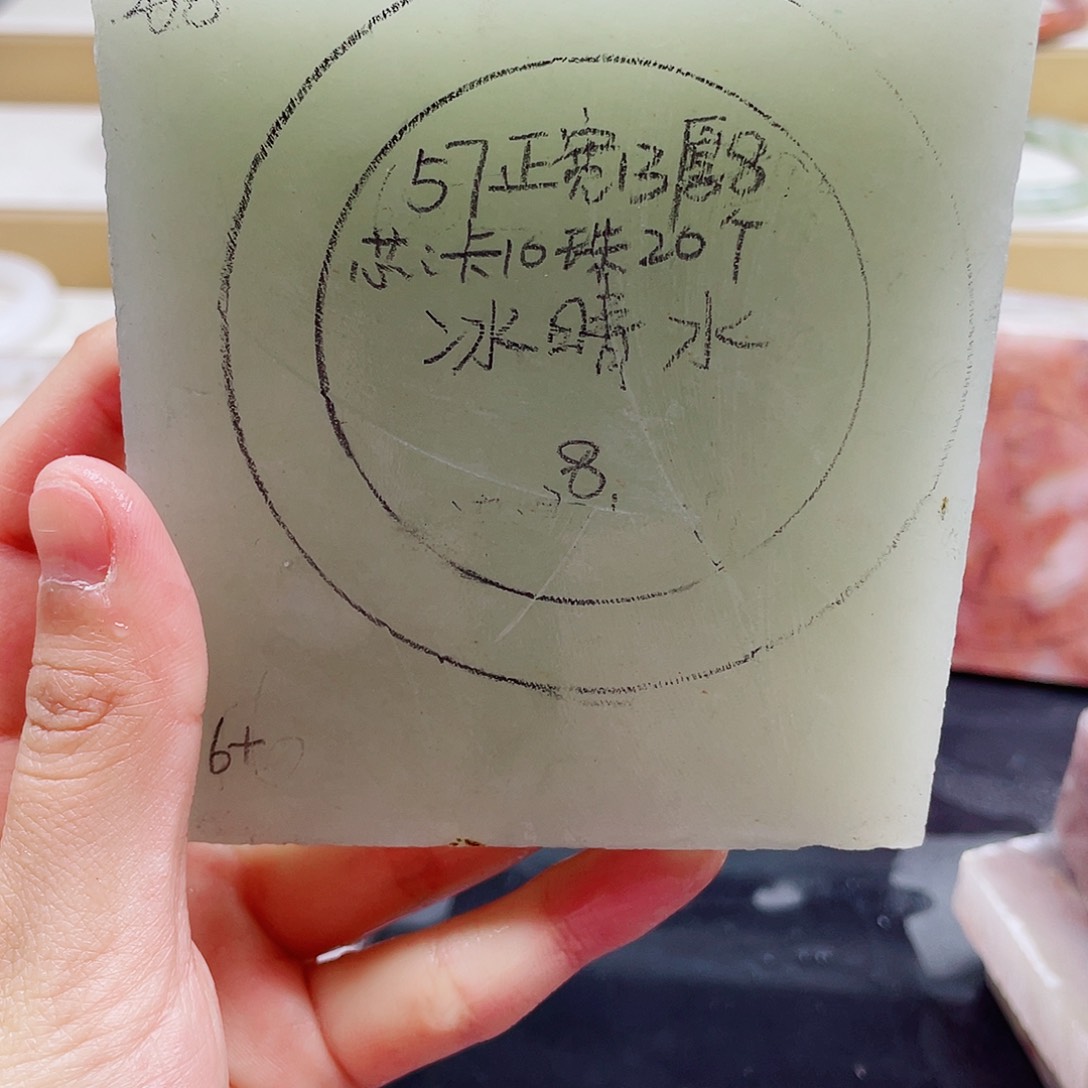 57正宽13厚8
芯:卡10珠20个
冰晴水
8.
6+